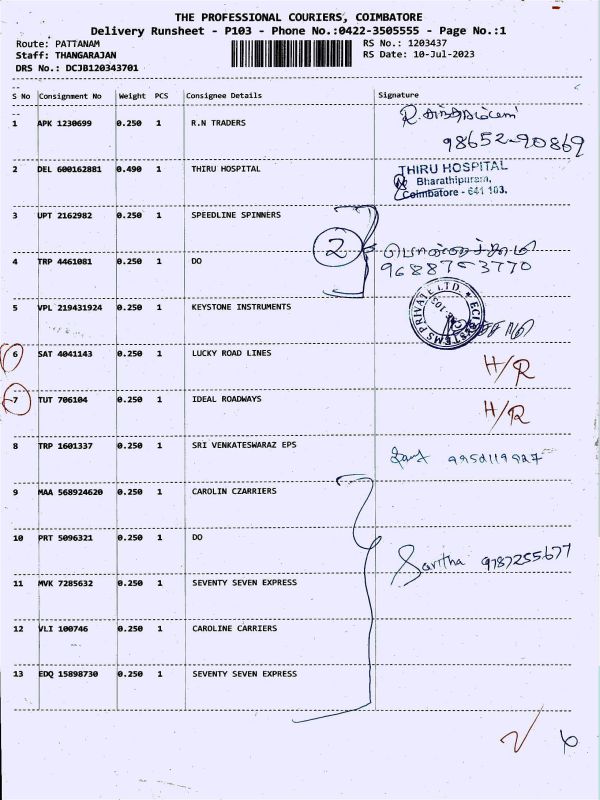 THE PROFESSIONAL COURIERS, COIMBATORE
Delivery Runsheet - P103 - Phone No.:0422-3505555 - Page No.:1
Route: PATTANAM RS No.: 1203437
Staff: THANGARAJAN RS Date: 10-Jul-2023
DRS No.: DCJB120343701
S No Consignment No Weight PCS Consignee Details Signature
1 APK 1230699 0.250 1 R.N TRADERS R.
98652-90869
2 DEL 600162881 0.490 1 THIRU HOSPITAL THIRU HOSPITAL
Bharathipuram,
Coimbatore - 641 103.
3 UPT 2162982 0.250 1 SPEEDLINE SPINNERS
2
4 TRP 4461081 0.250 1 DO
9688753770
5 VPL 219431924 0.250 1 KEYSTONE INSTRUMENTS
6 SAT 4041143 0.250 1 LUCKY ROAD LINES H/R
7 TUT 706104 0.250 1 IDEAL ROADWAYS H/R
8 TRP 1601337 0.250 1 SRI VENKATESWARAZ EPS
9 MAA 568924620 0.250 1 CAROLIN CZARRIERS
10 PRT 5096321 0.250 1 DO Saritha 9787255677
11 MVK 7285632 0.250 1 SEVENTY SEVEN EXPRESS
12 VLI 100746 0.250 1 CAROLINE CARRIERS
13 EDQ 15898730 0.250 1 SEVENTY SEVEN EXPRESS